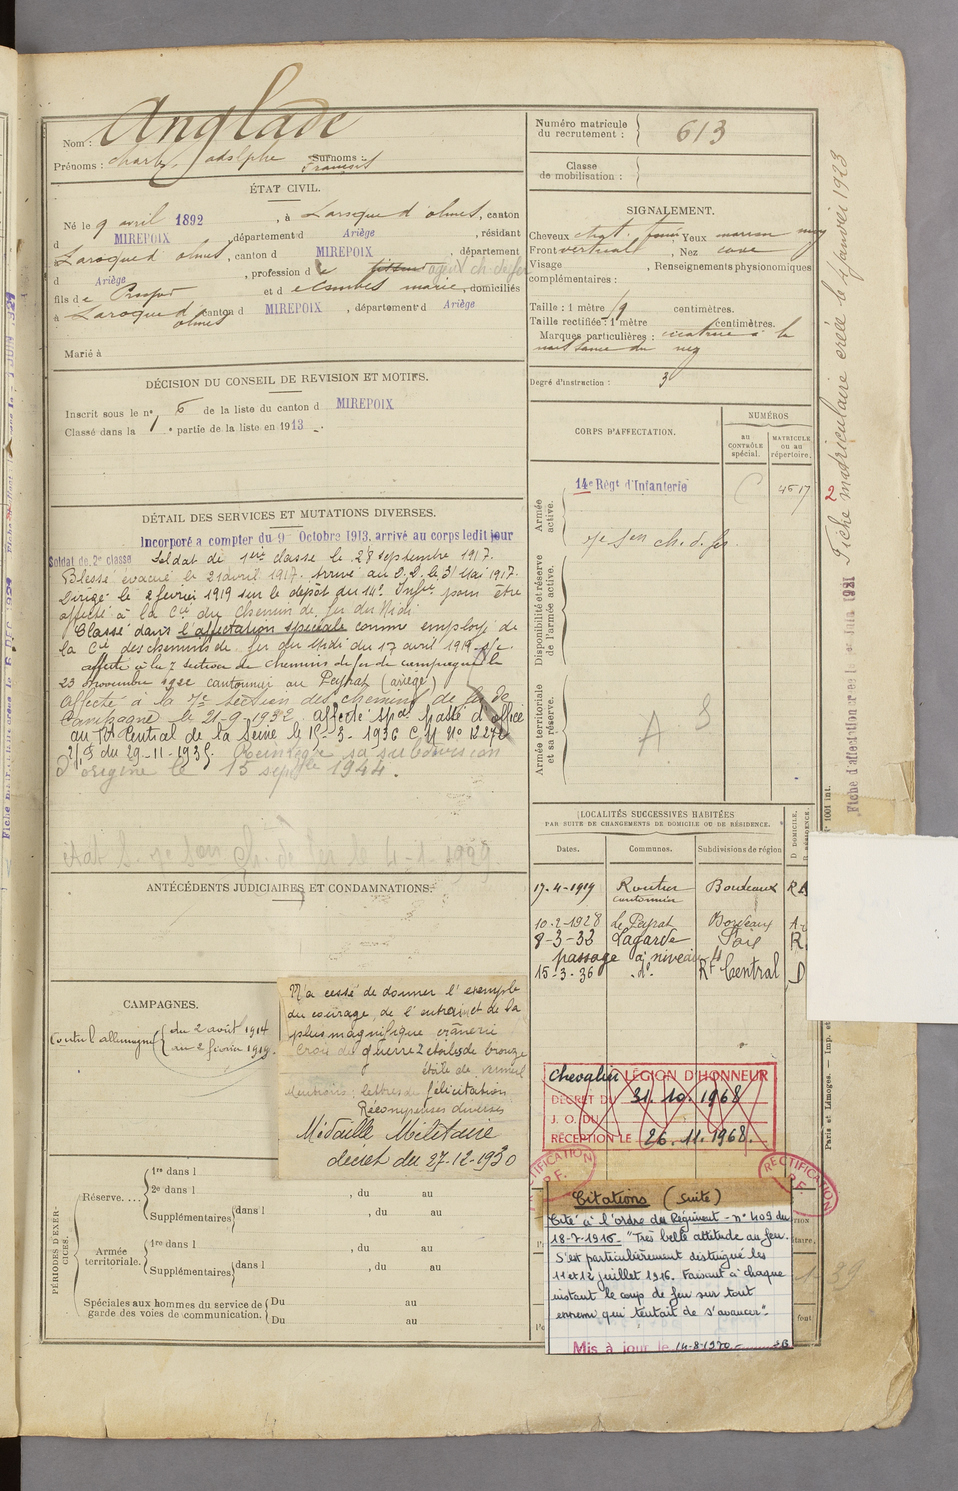 Nom : Anglade
Prénoms : Charles, adolphe Surnoms :
François
ÉTAT CIVIL.
Né le 9 avril 1892, à Laroque d'olmes, canton
d MIREPOIX, département d Ariège, résidant
Laroque d'olmes, canton d MIREPOIX, département
d Ariège, profession de tisseur agent ch de fer
fils de et d marie, domiciliés
à Laroque d'olmes canton d MIREPOIX, département d Ariège
Marié à
DÉCISION DU CONSEIL DE REVISION ET MOTIFS.
Inscrit sous le n° 6 de la liste du canton d MIREPOIX
Classé dans la 1 e partie de la liste en 1913.
DÉTAIL DES SERVICES ET MUTATIONS DIVERSES.
Incorporé a compter du 9 Octobre 1913. arrivé au corps ledit jour
Soldat de 2e classe Soldat de 1ère classe le 28 septembre 1917.
Blessé évacué le 21 avril 1917. Arrivé au D.D. le 31 Mai 1917.
Dirigé le 2 fevrier 1919 sur le dépôt du 14e Infie pour être
affecté à la Cie du Chemin de fer du Midi
Classé dans l'affectation spéciale comme employé de
la Cie des chemins de fer du Midi du 17 avril 1919
affecté à la 7 section de chemins de fer de campagne le
23 novembre 1922 cantonnier au Peyrat (ariège)
Affecté à la 7e section des chemins de fer de
Campagne le 21-9-1932 affecté spal passé d'office
au Rt Central de la Seine le 15-3-1936 C.M. No 12271
2/1.S du 29-11-1935. Réintègre sa subdivision
d'origine le 15 septbre 1944.
7e Son Ch. de fer le 4-1-1929
ANTÉCÉDENTS JUDICIAIRES ET CONDAMNATIONS.
CAMPAGNES.
Contre l'allemagne du 2 août 1914
au 2 février 1919.
N'a cessé de donner l'exemple
du courage, de l'entrain et de la
plus magnifique crânerie
Croix de guerre 2 étoiles de bronze
étoile de vermeil
Mentions : lettres de félicitation
Récompenses diverses
Médaille Militaire
décret du 27-12-1930
PÉRIODES D'EXERCICES.
Réserve.... 1re dans l , du au
2e dans l
Supplémentaires dans l , du au
Armée territoriale. 1re dans l , du au
Supplémentaires dans l , du au
Spéciales aux hommes du service de garde des voies de communication. Du au
Du au
Numéro matricule du recrutement : 613
Classe de mobilisation :
SIGNALEMENT.
Cheveux chat. foncé, Yeux marron
Front vertical, Nez cave
Visage , Renseignements physionomiques
complémentaires :
Taille : 1 mètre 59 centimètres.
Taille rectifiée : 1 mètre centimètres.
Marques particulières : cicatrice à la
naissance du nez
Degré d'instruction : 3
CORPS D'AFFECTATION.
NUMÉROS
AU CONTRÔLE spécial.
MATRICULE ou au répertoire.
Armée active.
14e Régt d'Infanterie C 4617
7e Son ch. d. fer
Disponibilité et réserve de l'armée active.
Armée territoriale et sa réserve.
A S
LOCALITÉS SUCCESSIVES HABITÉES
PAR SUITE DE CHANGEMENTS DE DOMICILE OU DE RÉSIDENCE.
Dates. Communes. Subdivisions de région
D DOMICILE. R RÉSIDENCE.
17-4-1919 Bordeaux R
cantonnier
10-2-1928 le Peyrat Bordeaux
8-3-33 Lagarde Foix R.
passage à niveau
15-3-36 d° Rt Central D
Chevalier LÉGION D'HONNEUR
DÉCRET DU 31.10.1968
J. O. DU
RÉCEPTION LE 26.11.1968.
RECTIFICATION
RECTIFICATION
Citations (suite)
Cité à l'ordre du Régiment - n° 409 du
18-7-1916 - "Très belle attitude au feu.
S'est particulièrement distingué les
11 et 12 juillet 1916. Faisant à chaque
instant le coup de feu sur tout
ennemi qui tentait de s'avancer".
Mis à jour le 14-8-1970
2 Fiche matriculaire créée le 4 janvier 1923
Fiche d'affectation créée le Juin 1921
N° 1001 int.
Paris et Limoges. — Imp. et